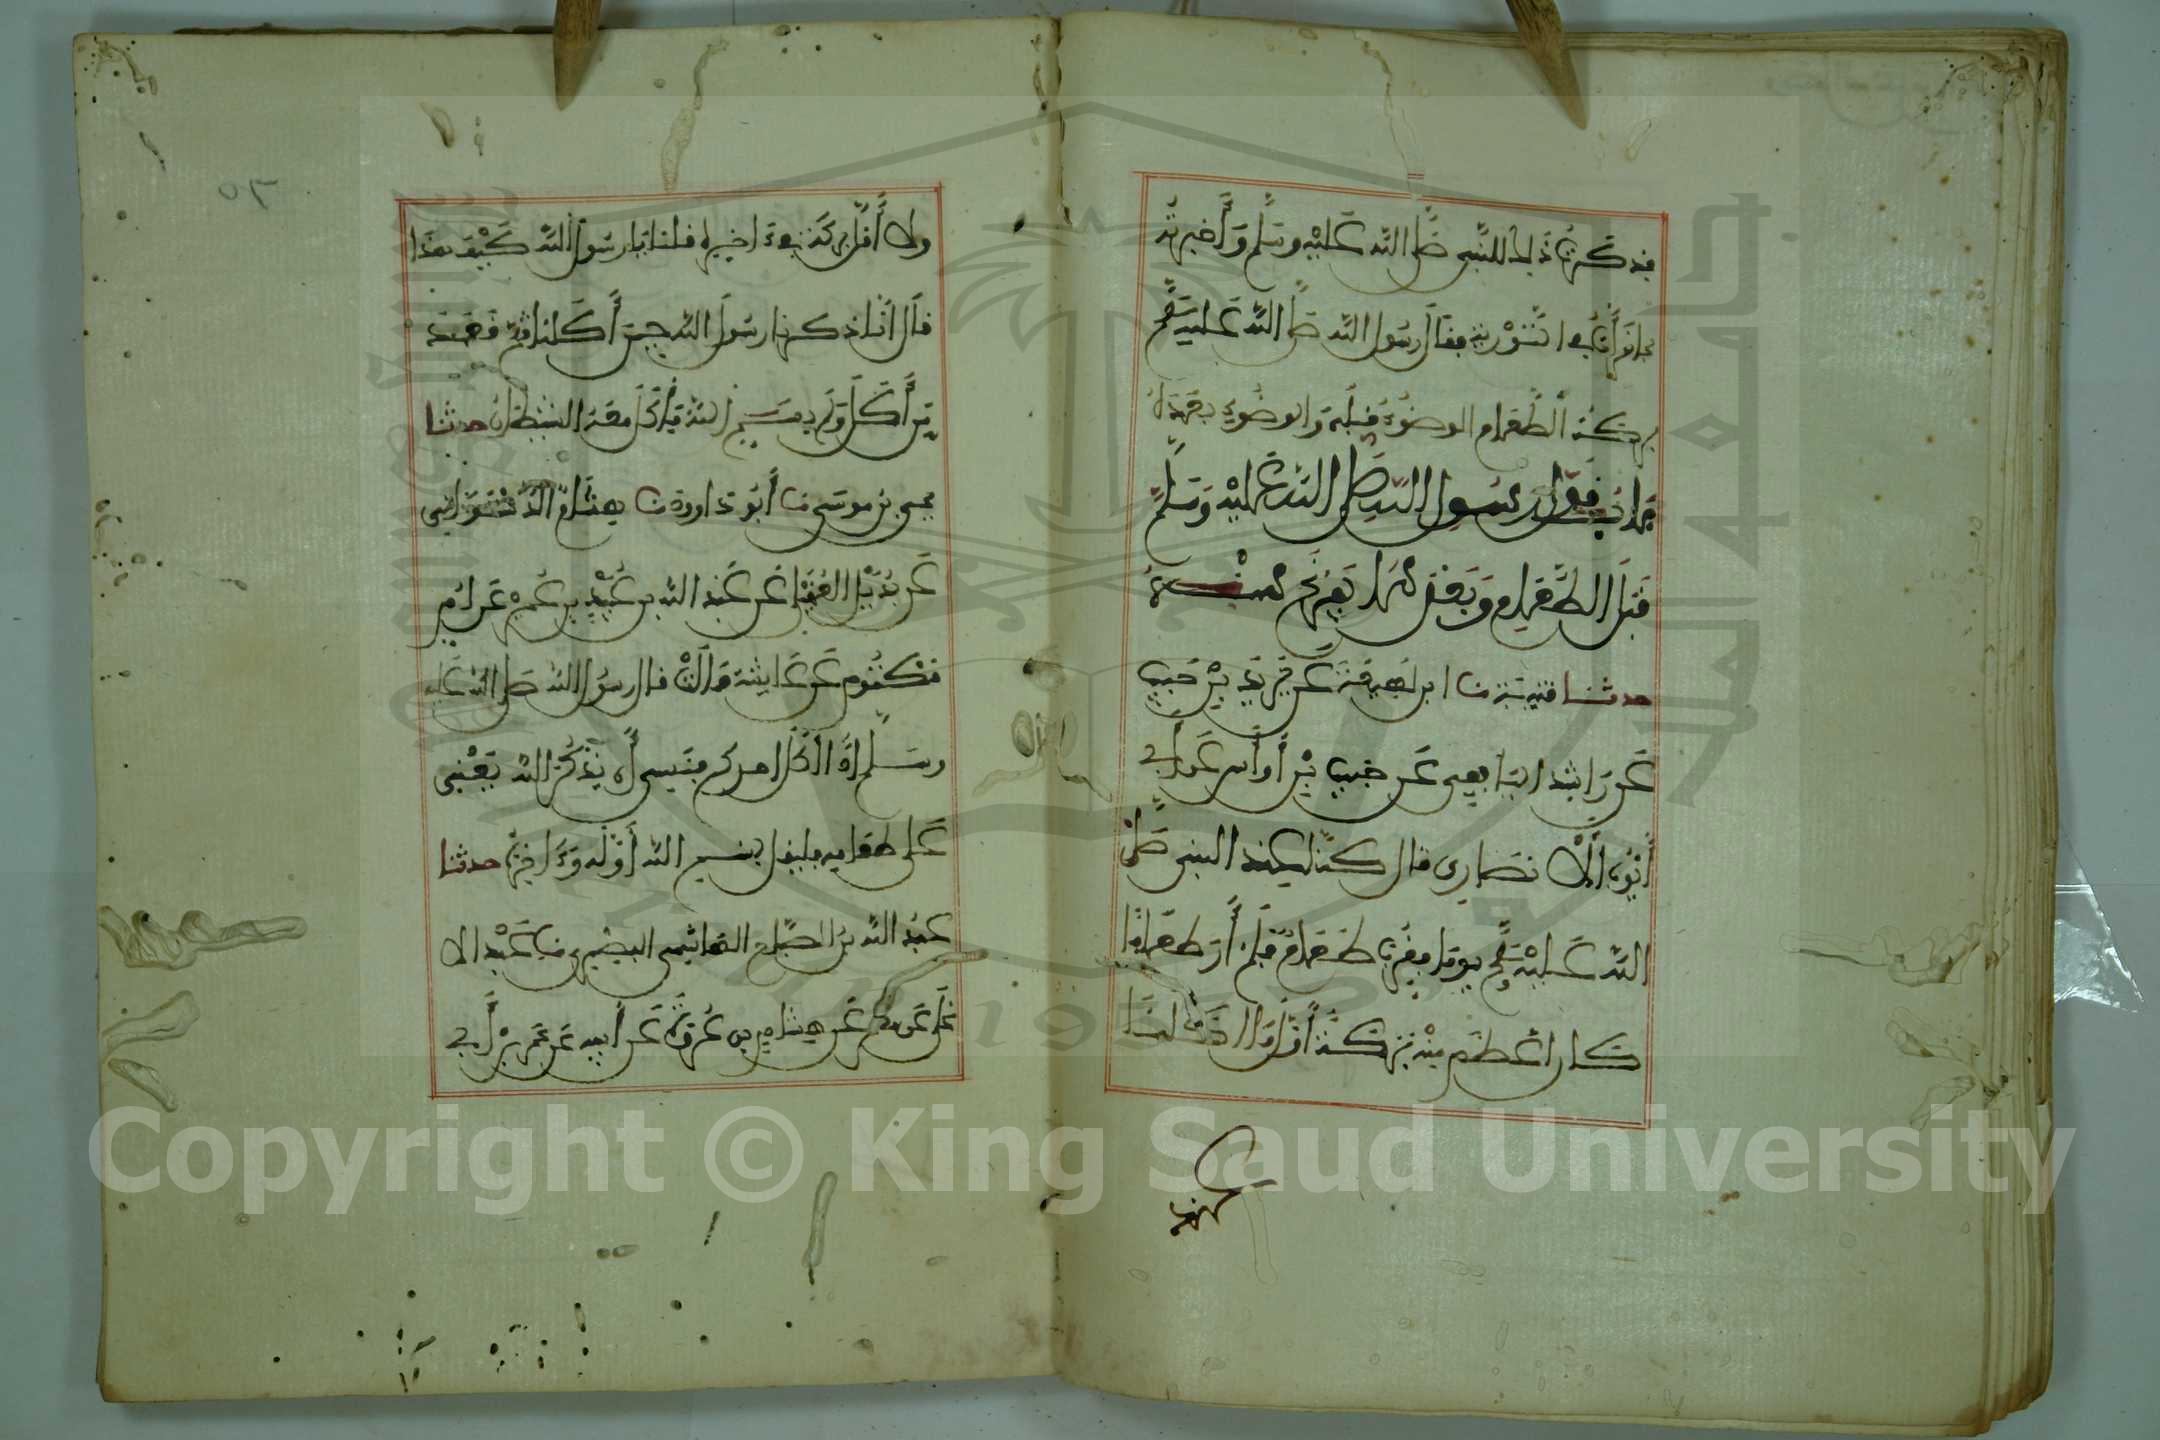 فذكرت ذلك للنبي صلى الله عليه وسلم وأخبرته
بما قرأت في التورية فقال رسول الله صلى الله عليه وسلم
بركة الطعام الوضوء قبله والوضوء بعده
باب قول رسول الله صلى الله عليه وسلم
قبل الطعام وبعد ما يفرغ منه
حدثنا قتيبة نا ابن لهيعة عن يزيد بن حبيب
عن راشد اليافعي عن حبيب بن أوس عن أبي
أيوب الأنصاري قال كنا عند النبي صلى
الله عليه وسلم يوما فقرب طعام فلم أر طعاما
كان أعظم منه بركة أول ما أكلنا
ولا أقل بركة في ءاخره فلنا يا رسول الله كيف هذا
قال انا ذكرنا رسول الله حين أكلنا ثم قعد
من أكل ولم يسم الله فأكل معه الشيطان حدثنا
يحيى بن موسى نا أبو داوود نا هشام الدستوائي
عن بديل العقيلي عن عبد الله بن عبيد بن عمير عن أم
كلثوم عن عايشة قالت قال رسول الله صلى الله عليه
وسلم اذا أكل احدكم فنسي أن يذكر الله يعني
على طعامه فليقل بسم الله أوله وءاخره حدثنا
عبد الله بن الصباح الهاشمي البصري نا عبد الا
على عن معمر عن هشام بن عروة عن أبيه عن عمر بن أبي
٥٣
Copyright © King Saud University